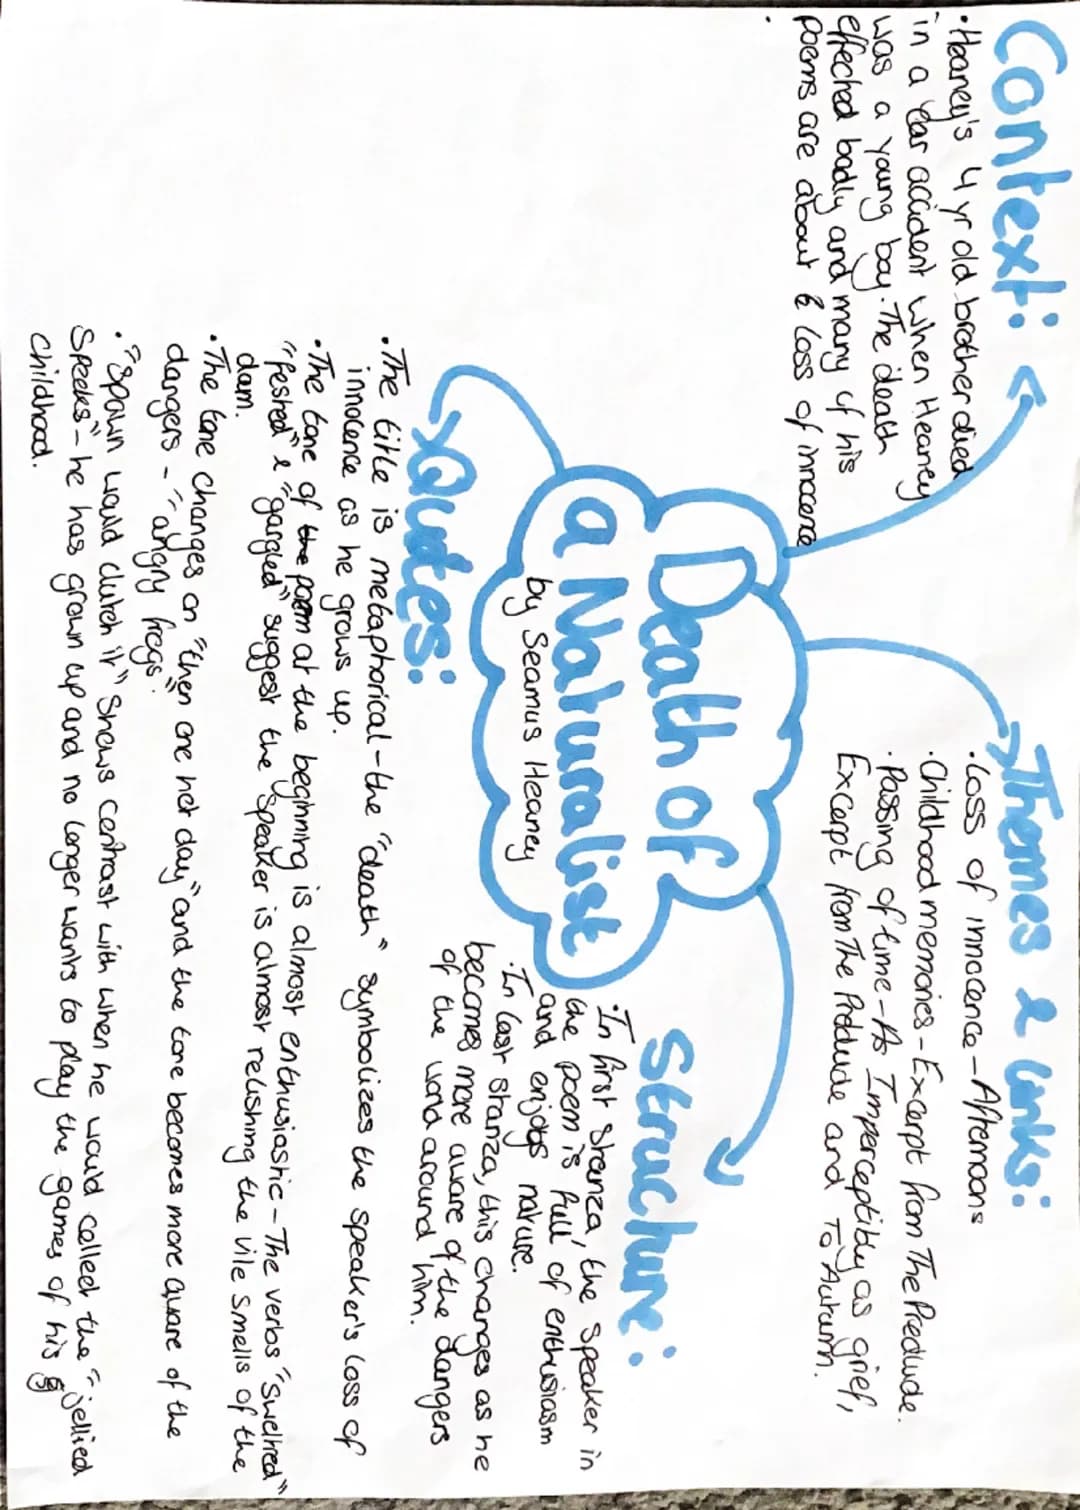 Context:
•Heaney's 4 yr old brother died
in a car accident when Heaney
was a young boy. The death
effected badly and many of his
poems are about & loss of innocence
.
Themes & Links:
•Loss of innocence - Afternoons
•Childhood memories - Excerpt from The Preludude.
•Passing of time - As Imperceptibly as grief,
Excerpt from The Preludude and To Autumn.
Death of
a Naturalist
by Seamus Heaney
Structure:
•In first stanza, the speaker in
the poem is full of enthusiasm
and enjoys nature.
•In last stanza, this changes as he
becomes more aware of the dangers
of the world around him.
Quotes:
•The title is metaphorical - the "death" symbolizes the speaker's loss of
innocence as he grows up.
•The tone of the poem at the beginning is almost enthusiastic - The verbs "sweltred"
"festred" & "gargled" suggest the speaker is almost relishing the vile smells of the
dam.
•The tone changes on "then one hot day" and the tone becomes more aware of the
dangers - "angry frogs".
•"Spawn would clutch it" shows contrast with when he would collect the "jellied
specks" - he has grown up and no longer wants to play the games of his
childhood.